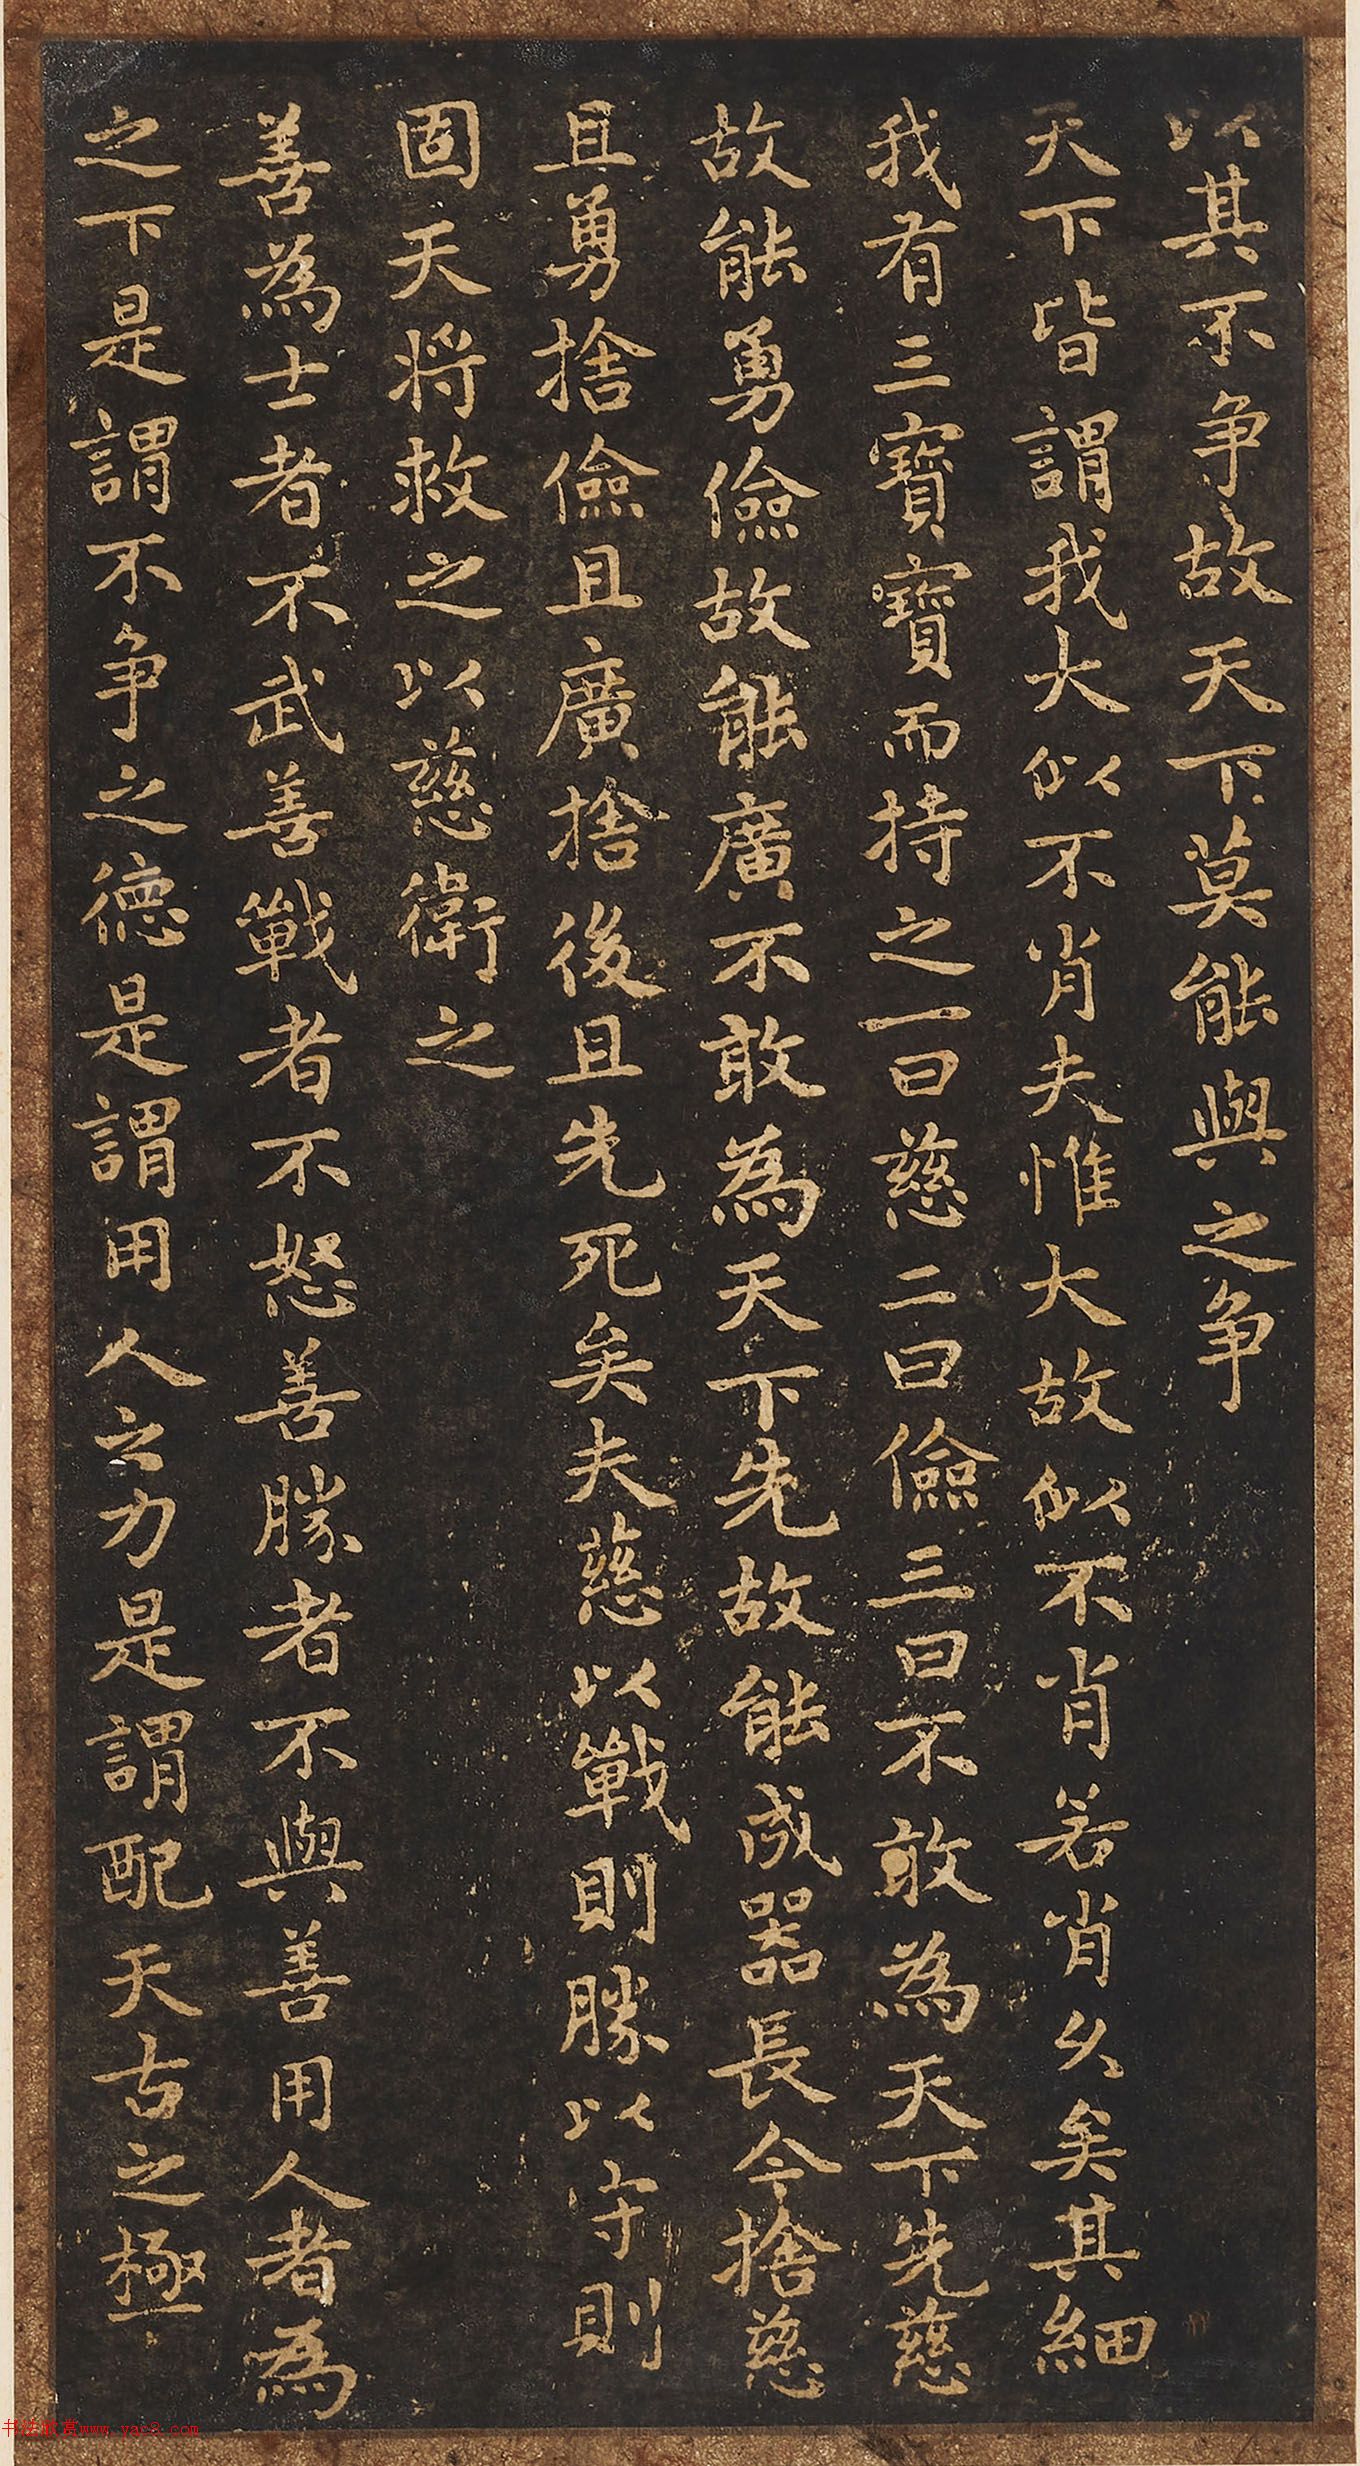 以其不争故天下莫能與之争
天下皆謂我大似不肖夫惟大故似不肖若肖久矣其細
我有三寶寶而持之一曰慈二曰儉三曰不敢為天下先慈
故能勇儉故能廣不敢為天下先故能成器長今捨慈
且勇捨儉且廣捨後且先死矣夫慈以戰則勝以守則
固天将救之以慈衛之
善為士者不武善戰者不怒善勝者不與善用人者為
之下是謂不争之德是謂用人之力是謂配天古之極
书法欣赏www.yac8.com